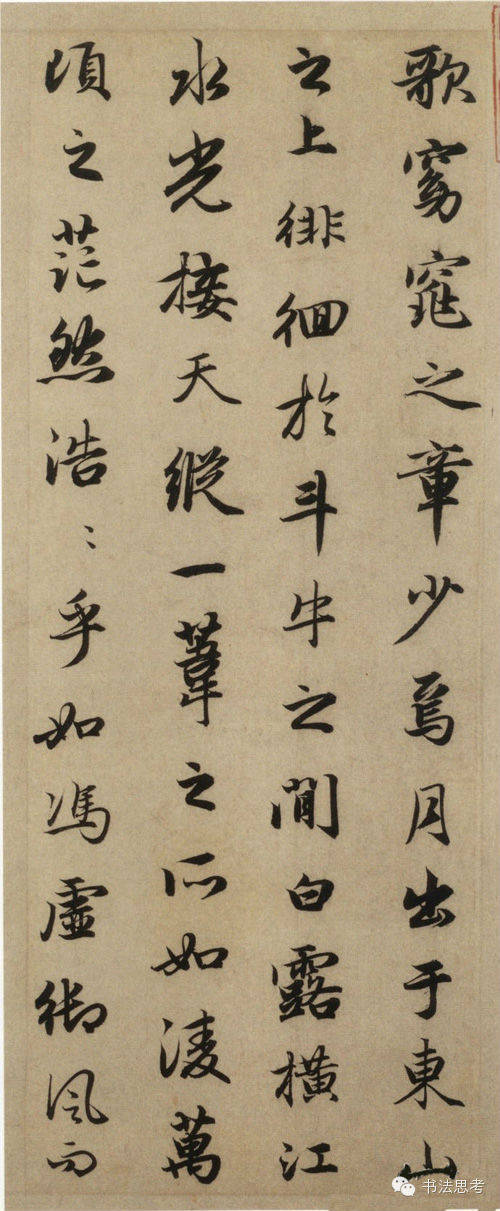 歌窈窕之章少焉月出于東山
之上徘徊於斗牛之間白露橫江
水光接天縱一葦之所如凌萬
頃之茫然浩〻乎如馮虛御風而
书法思考